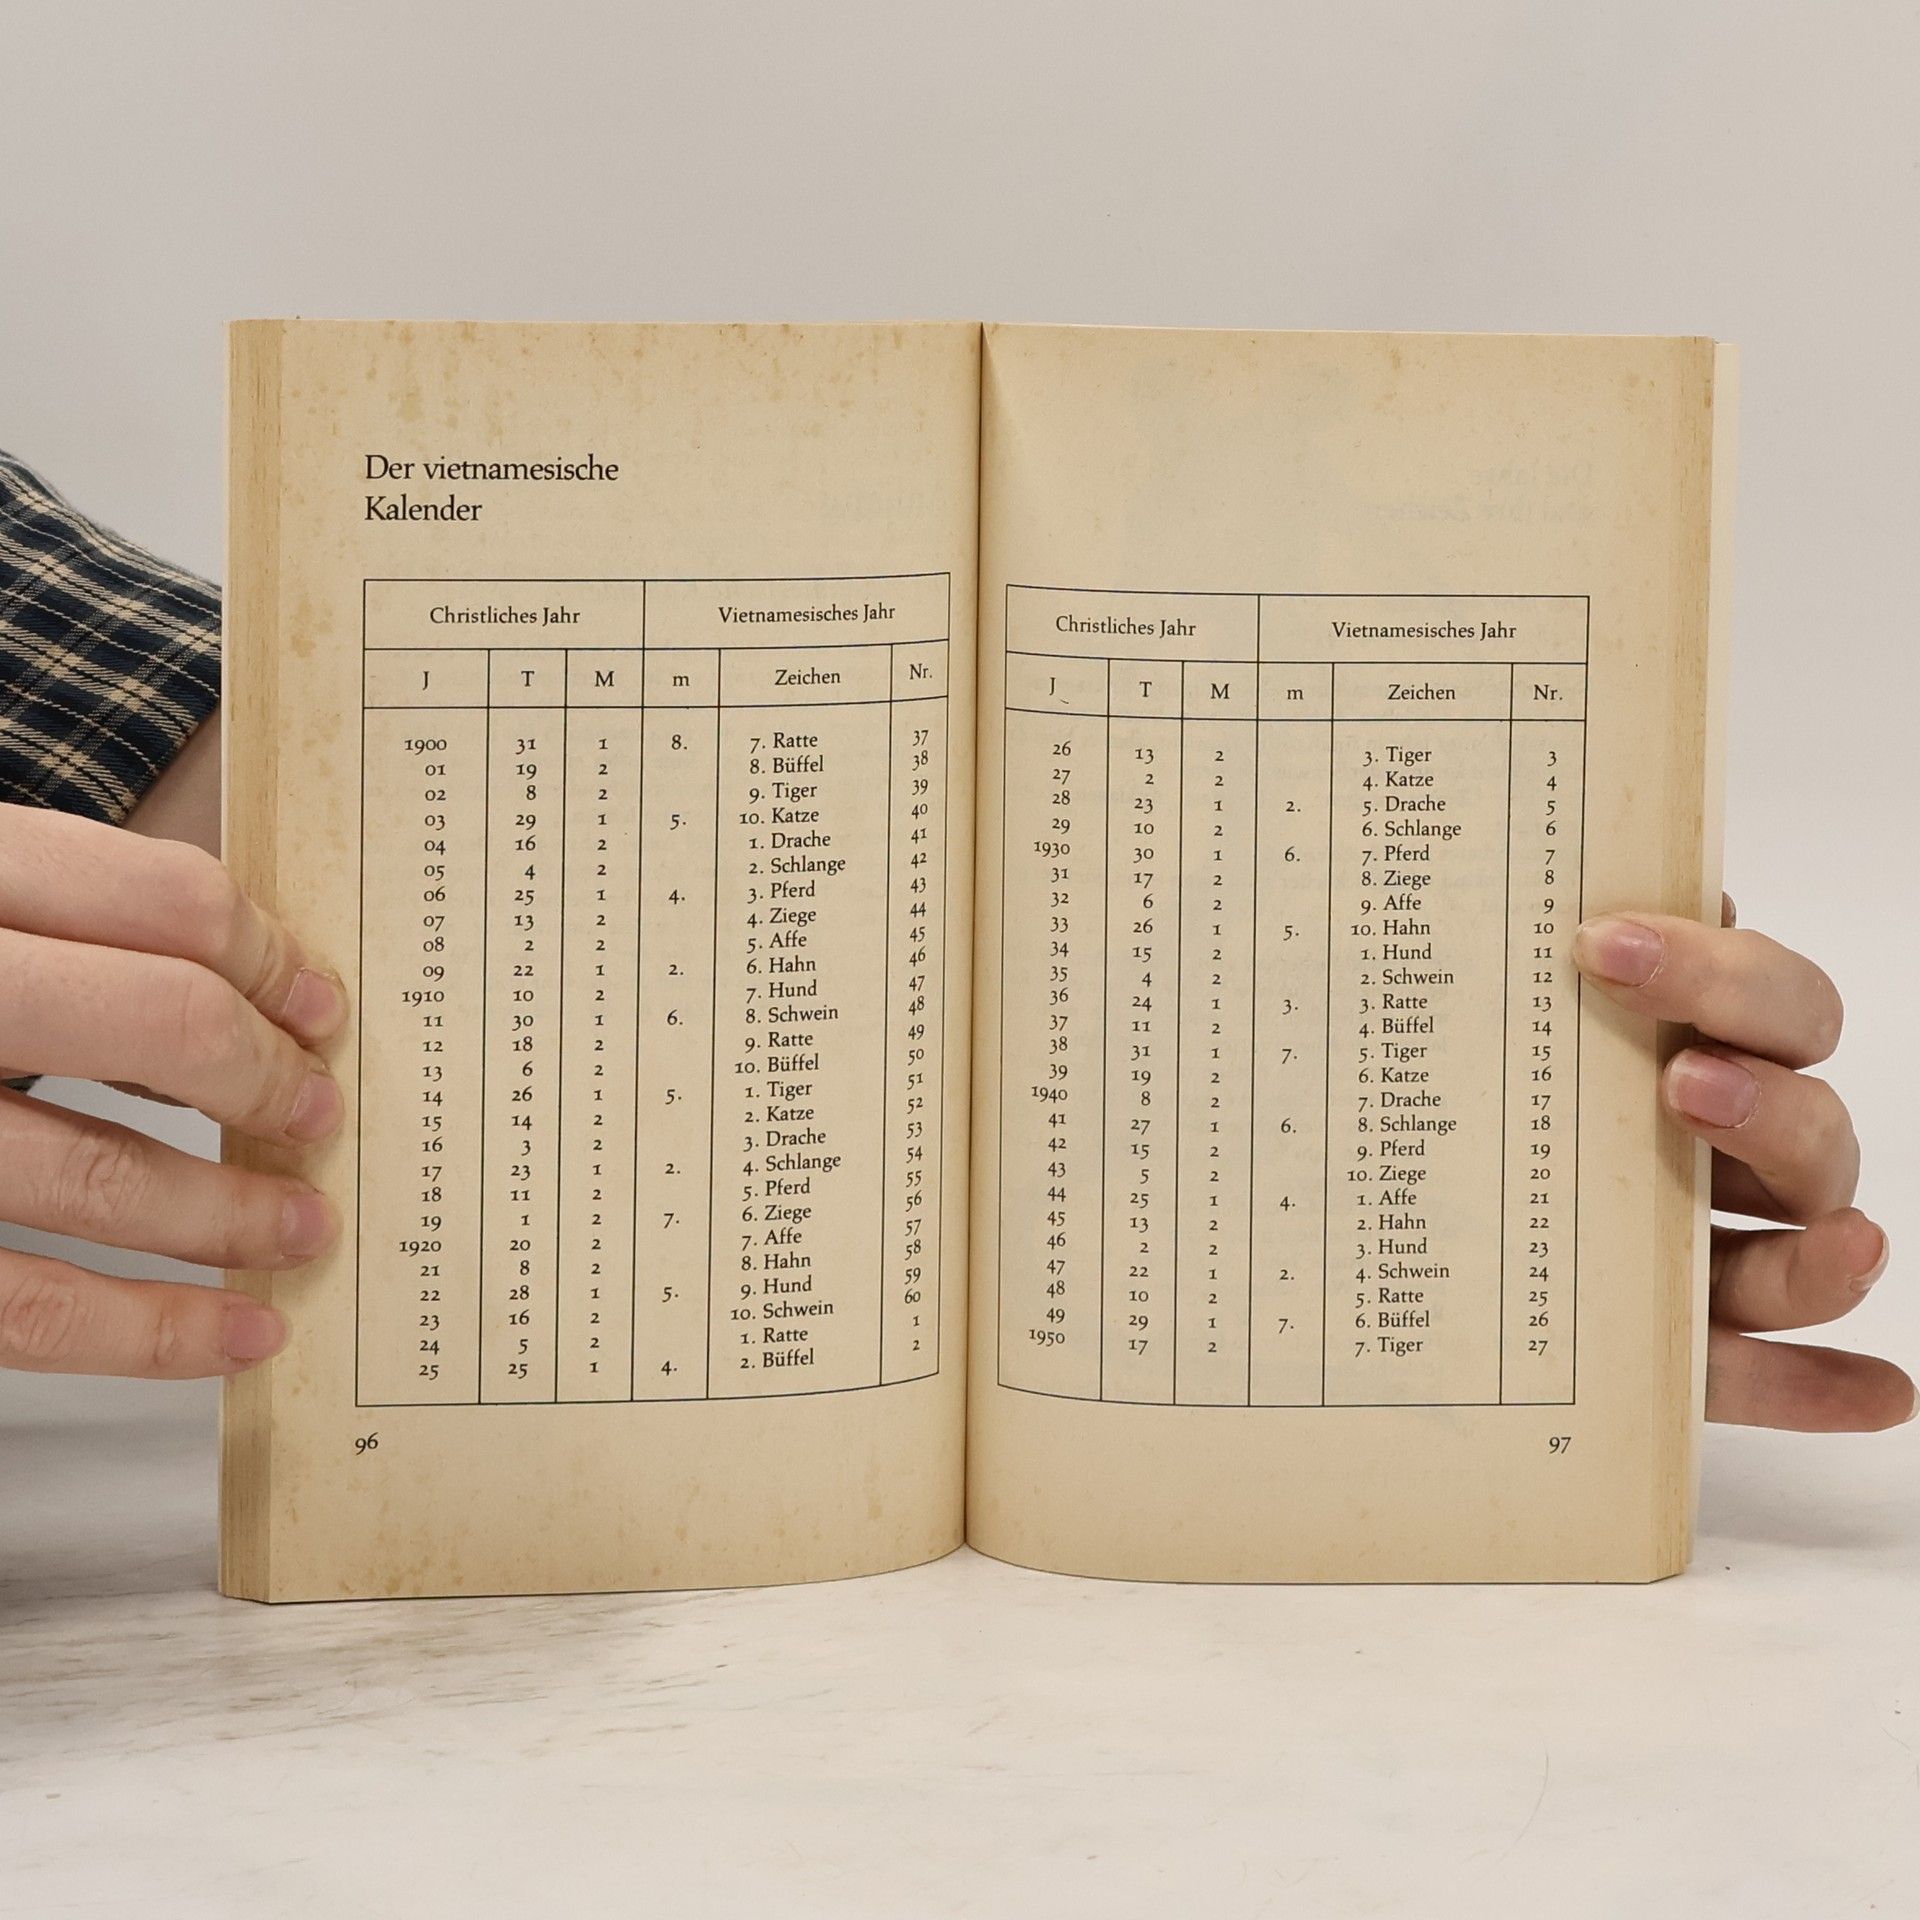 Der vietnamesische
Kalender
Christliches Jahr Vietnamesisches Jahr
J T M m Zeichen Nr.
1900 31 1 8. 7. Ratte 37
01 19 2 8. Büffel 38
02 8 2 9. Tiger 39
03 29 1 5. 10. Katze 40
04 16 2 1. Drache 41
05 4 2 2. Schlange 42
06 25 1 4. 3. Pferd 43
07 13 2 4. Ziege 44
08 2 2 5. Affe 45
09 22 1 2. 6. Hahn 46
1910 10 2 7. Hund 47
11 30 1 6. 8. Schwein 48
12 18 2 9. Ratte 49
13 6 2 10. Büffel 50
14 26 1 5. 1. Tiger 51
15 14 2 2. Katze 52
16 3 2 3. Drache 53
17 23 1 2. 4. Schlange 54
18 11 2 5. Pferd 55
19 1 2 7. 6. Ziege 56
1920 20 2 7. Affe 57
21 8 2 8. Hahn 58
22 28 1 5. 9. Hund 59
23 16 2 10. Schwein 60
24 5 2 1. Ratte 1
25 25 1 4. 2. Büffel 2
96
Christliches Jahr Vietnamesisches Jahr
J T M m Zeichen Nr.
26 13 2 3. Tiger 3
27 2 2 4. Katze 4
28 23 1 2. 5. Drache 5
29 10 2 6. Schlange 6
1930 30 1 6. 7. Pferd 7
31 17 2 8. Ziege 8
32 6 2 9. Affe 9
33 26 1 5. 10. Hahn 10
34 15 2 1. Hund 11
35 4 2 2. Schwein 12
36 24 1 3. 3. Ratte 13
37 11 2 4. Büffel 14
38 31 1 7. 5. Tiger 15
39 19 2 6. Katze 16
1940 8 2 7. Drache 17
41 27 1 6. 8. Schlange 18
42 15 2 9. Pferd 19
43 5 2 10. Ziege 20
44 25 1 4. 1. Affe 21
45 13 2 2. Hahn 22
46 2 2 3. Hund 23
47 22 1 2. 4. Schwein 24
48 10 2 5. Ratte 25
49 29 1 7. 6. Büffel 26
1950 17 2 7. Tiger 27
97